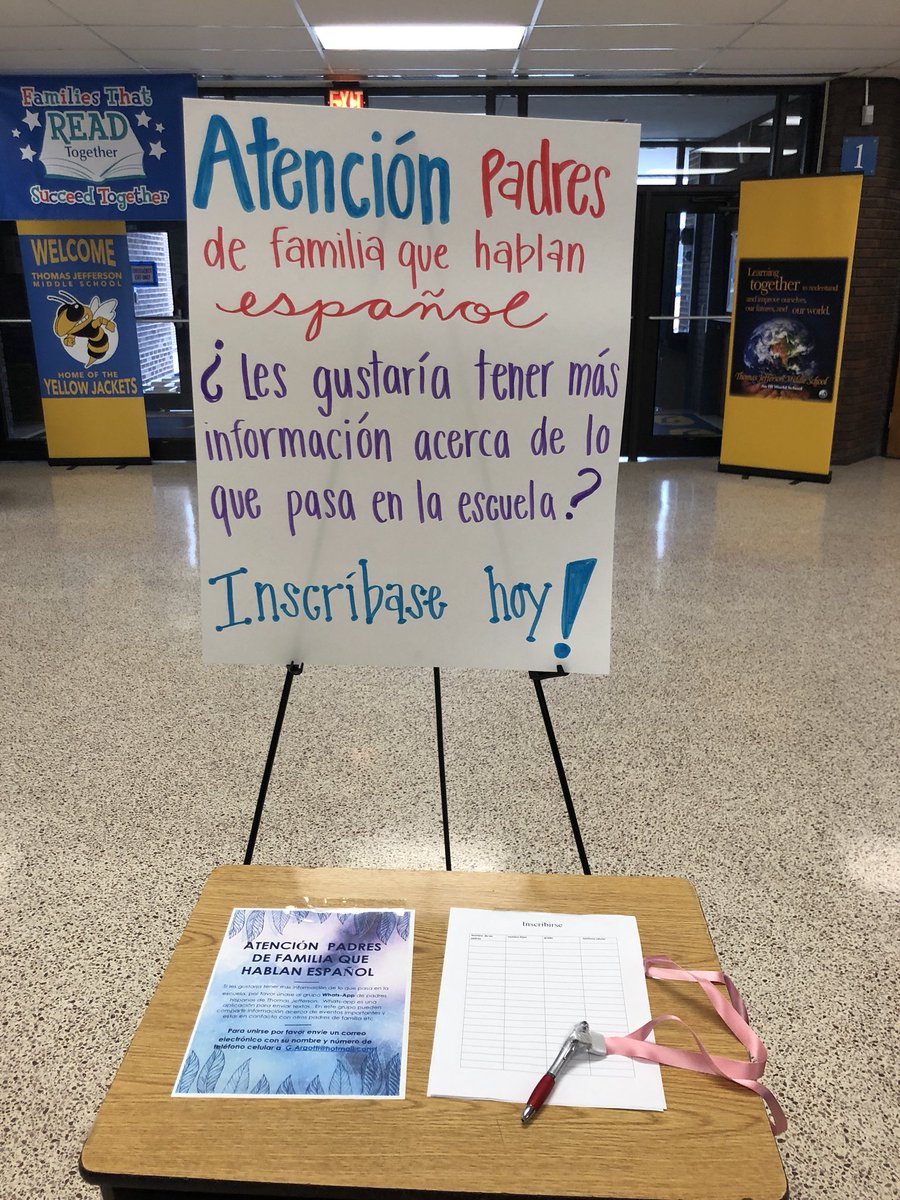 Families That
READ
Together
Succeed Together
EXIT
1
WELCOME
THOMAS JEFFERSON
MIDDLE SCHOOL
HOME OF THE
YELLOW JACKETS
Learning
together to understand
and improve ourselves,
our futures, and our world.
Thomas Jefferson Middle School
An IB World School
Atención Padres
de familia que hablan
español
¿Les gustaría tener más
información acerca de lo
que pasa en la escuela?
Inscríbase hoy!
ATENCIÓN PADRES
DE FAMILIA QUE
HABLAN ESPAÑOL
Si les gustaria tener mas informacion de lo que pasa en la
escuela, por favor unase al grupo Whats-App de padres
hispanos de Thomas Jefferson. Whats-app es una
aplicación para enviar textos. En este grupo pueden
compartir información acerca de eventos importantes y
estar en contacto con otros padres de familia etc.
Para unirse por favor envie un correo
electrónico con su nombre y número de
teléfono celular a G.Argotti@hotmail.com
Inscribirse